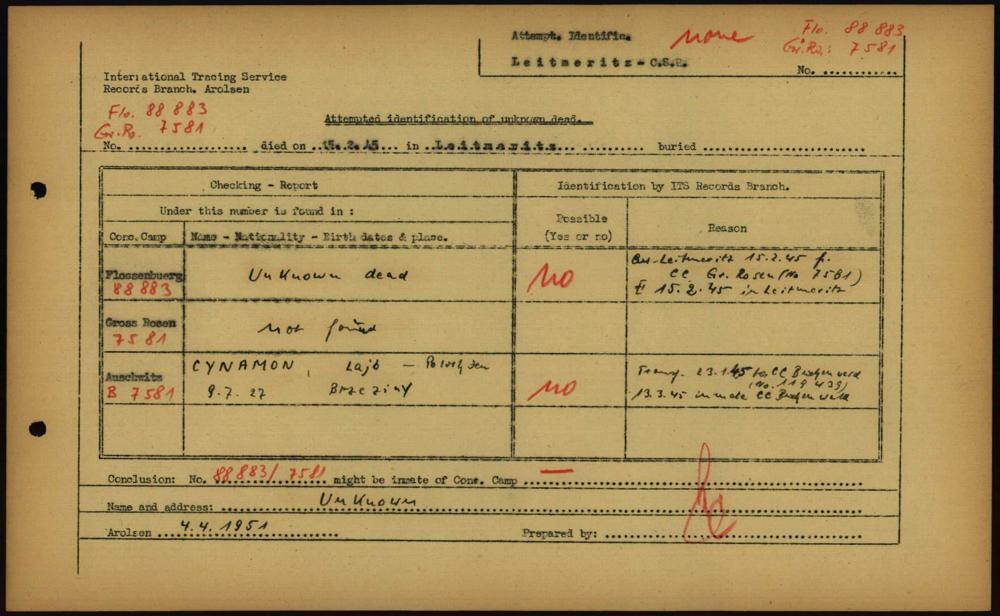 Attempt. Identific. none Flo. 88 883
Gr.Ro.: 7581
Leitmeritz - C.S.R. No. ............
International Tracing Service
Records Branch, Arolsen
Flo. 88 883
Gr.Ro. 7581
Attempted identification of unknown dead.
No. .................. died on ..15.2.45... in ..Leitmeritz... .......... buried ........................
Checking - Report Identification by ITS Records Branch.
Under this number is found in :
Possible
(Yes or no) Reason
Conc. Camp Name - Nationality - Birthdates & place.
Flossenbuerg
88 883 Unknown dead no
Leitmeritz 15.2.45 f.
CC Gr. Rosen (No 7581)
15.2.45 in Leitmeritz
Gross Rosen
7581 not found
Auschwitz
B 7581 CYNAMON, Lajb —
9.7.27 Brzeziny no
23.1.45 to CC Buchenwald
(No. 119 439)
13.3.45 inmate CC Buchenwald
Conclusion: No. 88883/7581 might be inmate of Conc. Camp — ........................
Name and address: Unknown
Arolsen 4.4.1951 Prepared by: ........................